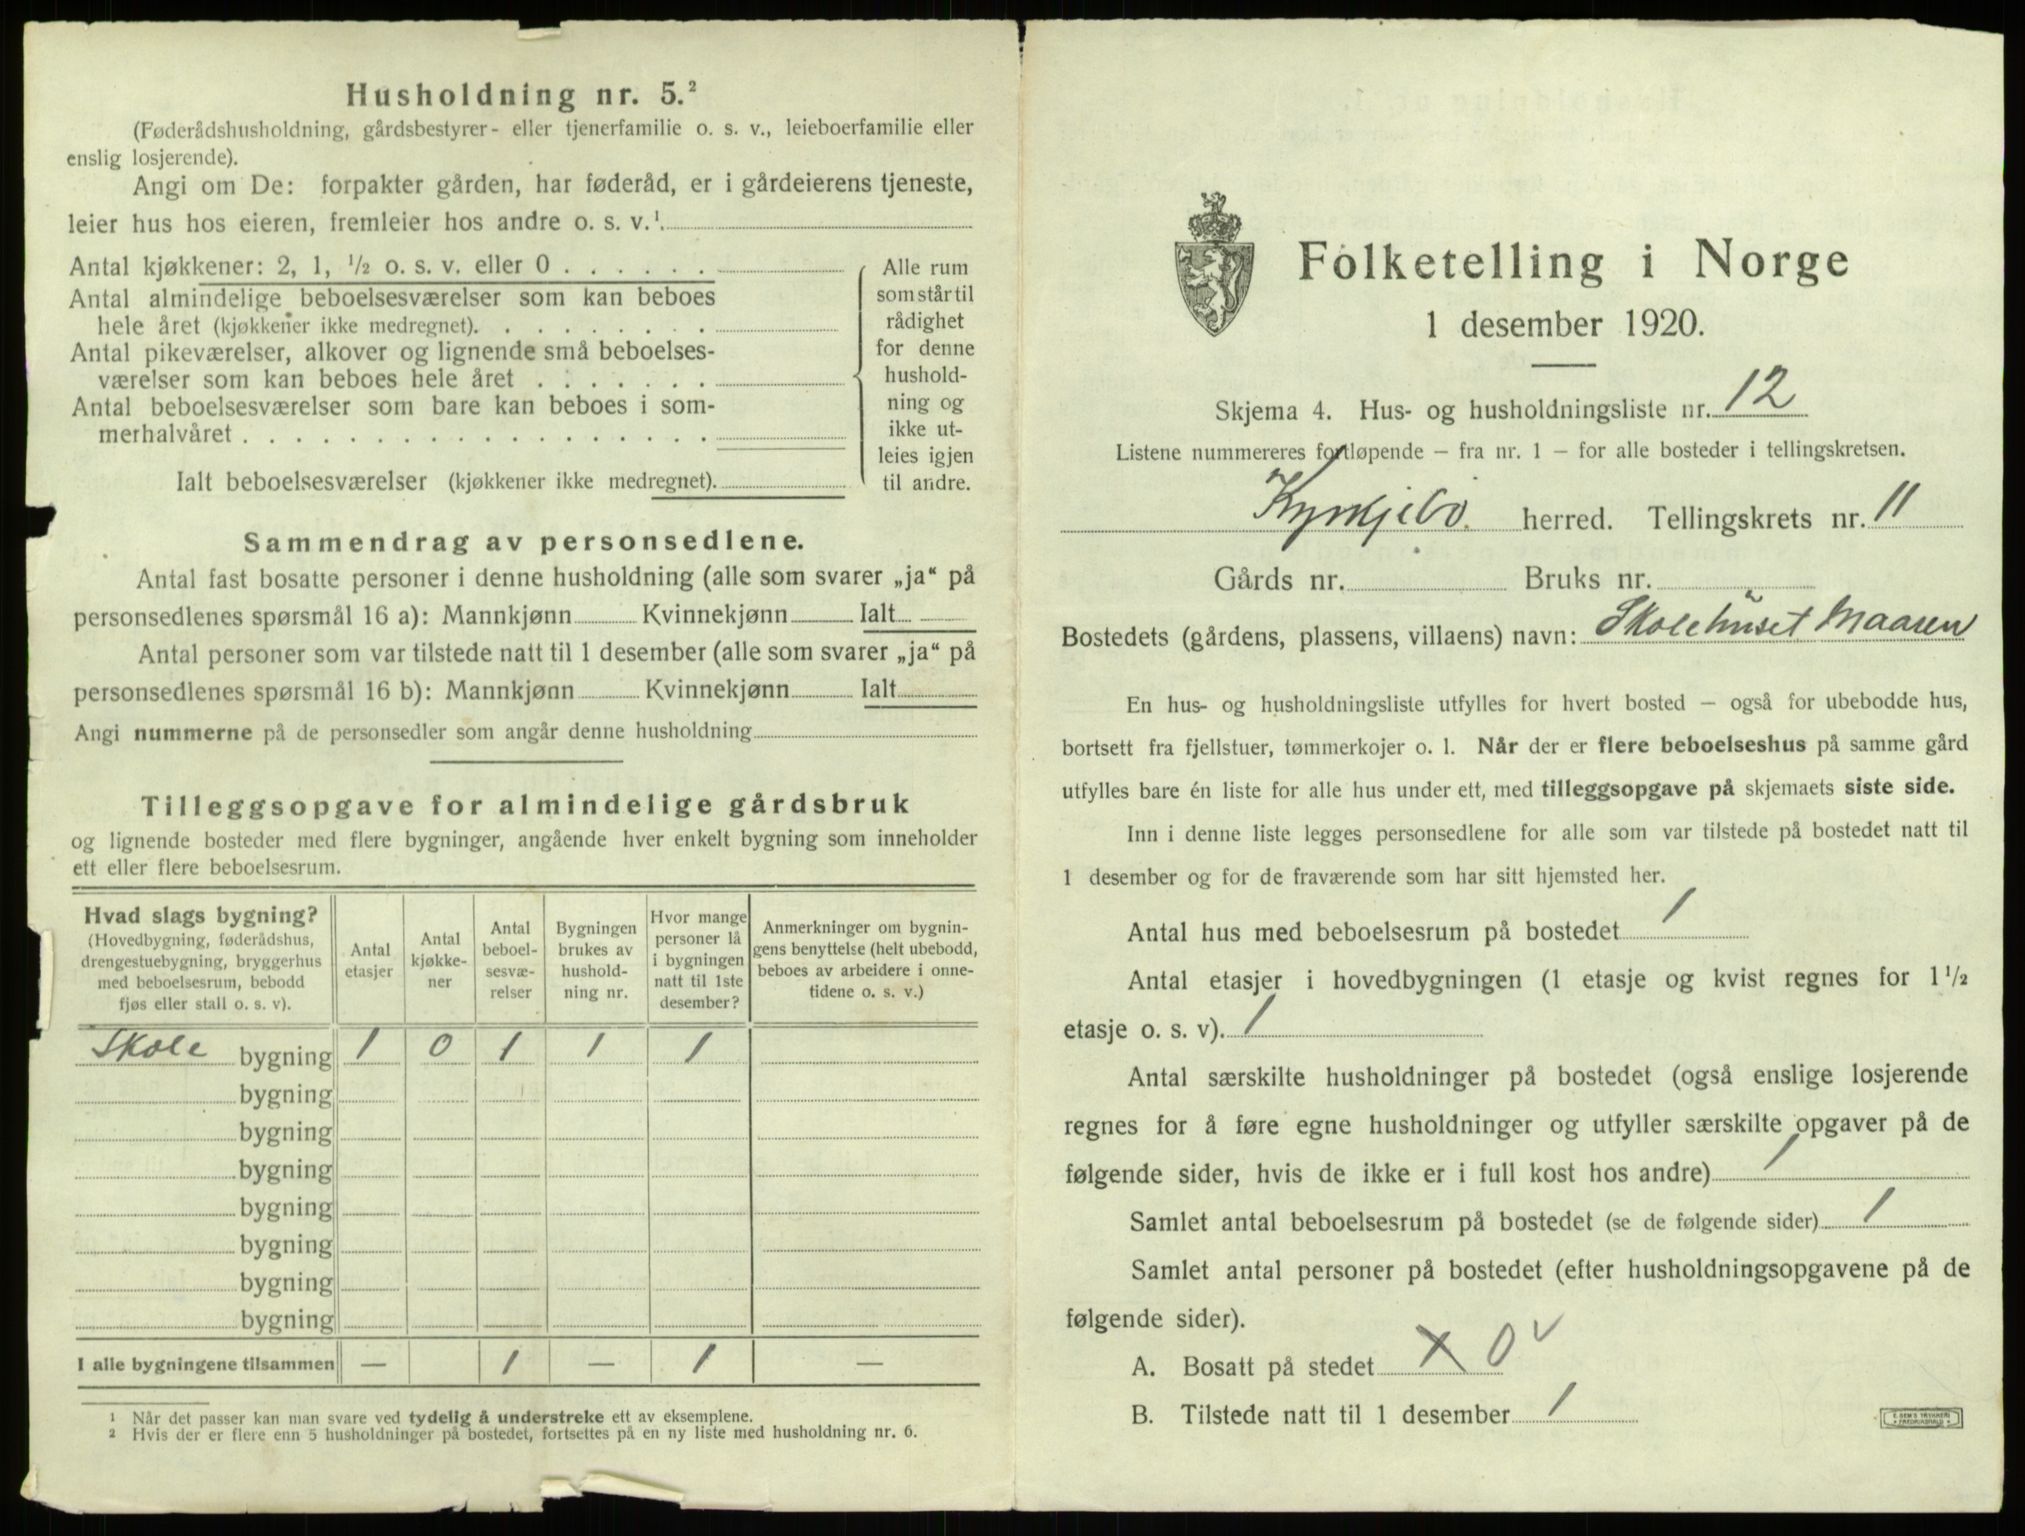 Husholdning nr. 5.²
(Føderådshusholdning, gårdsbestyrer- eller tjenerfamilie o. s. v., leieboerfamilie eller
enslig losjerende).
Angi om De: forpakter gården, har føderåd, er i gårdeierens tjeneste,
leier hus hos eieren, fremleier hos andre o. s. v.¹.
Antal kjøkkener: 2, 1, ½ o. s. v. eller 0 . . . . . .
Antal almindelige beboelsesværelser som kan beboes
hele året (kjøkkener ikke medregnet). . . . . . . . .
Antal pikeværelser, alkover og lignende små beboelses-
værelser som kan beboes hele året . . . . . . .
Antal beboelsesværelser som bare kan beboes i som-
merhalvåret . . . . . . . . . . . . . . . . . .
Ialt beboelsesværelser (kjøkkener ikke medregnet).
Alle rum
som står til
rådighet
for denne
hushold-
ning og
ikke ut-
leies igjen
til andre.
Sammendrag av personsedlene.
Antal fast bosatte personer i denne husholdning (alle som svarer „ja“ på
personsedlenes spørsmål 16 a): Mannkjønn Kvinnekjønn Ialt
Antal personer som var tilstede natt til 1 desember (alle som svarer „ja“ på
personsedlenes spørsmål 16 b): Mannkjønn Kvinnekjønn Ialt
Angi nummerne på de personsedler som angår denne husholdning
Tilleggsopgave for almindelige gårdsbruk
og lignende bosteder med flere bygninger, angående hver enkelt bygning som inneholder
ett eller flere beboelsesrum.
Hvad slags bygning?
(Hovedbygning, føderådshus,
drengestuebygning, bryggerhus
med beboelsesrum, bebodd
fjøs eller stall o. s. v).
Antal
etasjer
Antal
kjøkke-
ner
Antal
beboel-
sesvæ-
relser
Bygningen
brukes av
hushold-
ning nr.
Hvor mange
personer lå
i bygningen
natt til 1ste
desember?
Anmerkninger om bygnin-
gens benyttelse (helt ubebodd,
beboes av arbeidere i onne-
tidene o. s. v.)
Skole bygning 1 0 1 1 1
bygning
bygning
bygning
bygning
bygning
bygning
bygning
I alle bygningene tilsammen — 1 — 1 —
¹ Når det passer kan man svare ved tydelig å understreke ett av eksemplene.
² Hvis der er flere enn 5 husholdninger på bostedet, fortsettes på en ny liste med husholdning nr. 6.
Folketelling i Norge
1 desember 1920.
Skjema 4. Hus- og husholdningsliste nr. 12
Listene nummereres fortløpende – fra nr. 1 – for alle bosteder i tellingskretsen.
Kyrkjebö. herred. Tellingskrets nr. 11
Gårds nr. Bruks nr.
Bostedets (gårdens, plassens, villaens) navn: Skolehuset Maaren
En hus- og husholdningsliste utfylles for hvert bosted – også for ubebodde hus,
bortsett fra fjellstuer, tømmerkojer o. l. Når der er flere beboelseshus på samme gård
utfylles bare én liste for alle hus under ett, med tilleggsopgave på skjemaets siste side.
Inn i denne liste legges personsedlene for alle som var tilstede på bostedet natt til
1 desember og for de fraværende som har sitt hjemsted her.
Antal hus med beboelsesrum på bostedet 1
Antal etasjer i hovedbygningen (1 etasje og kvist regnes for 1½
etasje o. s. v). 1
Antal særskilte husholdninger på bostedet (også enslige losjerende
regnes for å føre egne husholdninger og utfyller særskilte opgaver på de
følgende sider, hvis de ikke er i full kost hos andre) 1
Samlet antal beboelsesrum på bostedet (se de følgende sider) 1
Samlet antal personer på bostedet (efter husholdningsopgavene på de
følgende sider).
A. Bosatt på stedet X 0 v
B. Tilstede natt til 1 desember 1
E. SEM'S TRYKKERI
FREDRIKSHALD